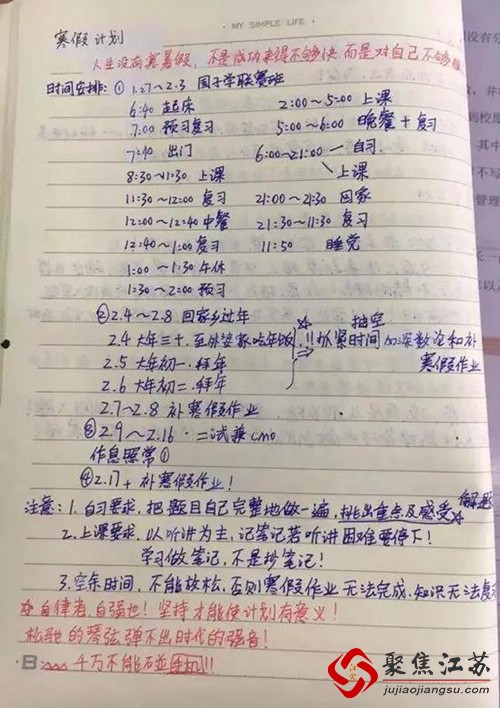 · MY SIMPLE LIFE ·
寒假计划
人生没有寒暑假，不是成功来得不够快，而是对自己不够狠
时间安排：① 1.27～2.3 国子学联赛班
6:40 起床 2:00～5:00 上课
7:00 预习复习 5:00～6:00 晚餐＋复习
7:40 出门 6:00～21:00 自习
8:30～11:30 上课 上课
11:30～12:00 复习 21:00～21:30 回家
12:00～12:40 中餐 21:30～11:30 复习
12:40～1:00 复习 11:50 睡觉
1:00～1:30 午休
1:30～2:00 预习
②2.4～2.8 回家乡过年 抽空
2.4 大年三十：至外婆家吃年饭 !!抓紧时间 加深数论和补
2.5 大年初一：拜年 寒假作业
2.6 大年初二：拜年
2.7～2.8 补寒假作业
③2.9～2.16 二试兼cmo
作息照常①
④2.17+ 补寒假作业！
注意：1.自习要求，把题目自己完整地做一遍，挑出重点及感受 解题
2.上课要求，以听讲为主，记笔记若听讲困难要停下！
学习做笔记，不是抄笔记！
3.空余时间，不能放松，否则寒假作业无法完成，知识无法复习
自律者，自强也！坚持才能使计划有意义！
松驰的琴弦弹不出时代的强音！
B 千万不能碰手机!!
聚焦江苏
jujiaojiangsu.com